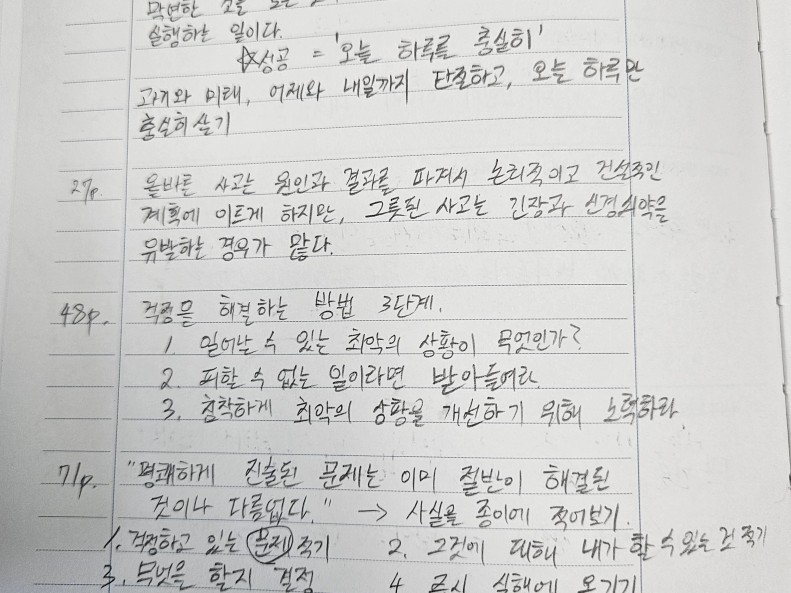 막연한 것을 보는
실행하는 일이다.
☆성공 = '오늘 하루를 충실히'
과거와 미래, 어제와 내일까지 단절하고, 오늘 하루만
충실히 살기
27p. 올바른 사고는 원인과 결과를 따져서 논리적이고 건설적인
계획에 이르게 하지만, 그릇된 사고는 긴장과 신경쇠약을
유발하는 경우가 많다.
48p. 걱정을 해결하는 방법 3단계.
1. 일어날 수 있는 최악의 상황이 무엇인가?
2. 피할 수 없는 일이라면 받아들여라
3. 침착하게 최악의 상황을 개선하기 위해 노력하라
71p. "명쾌하게 진술된 문제는 이미 절반이 해결된
것이나 다름없다." → 사실을 종이에 적어보기.
1. 걱정하고 있는 문제 적기 2. 그것에 대해 내가 할 수 있는 것 적기
3. 무엇을 할지 결정 4. 즉시 실행에 옮기기